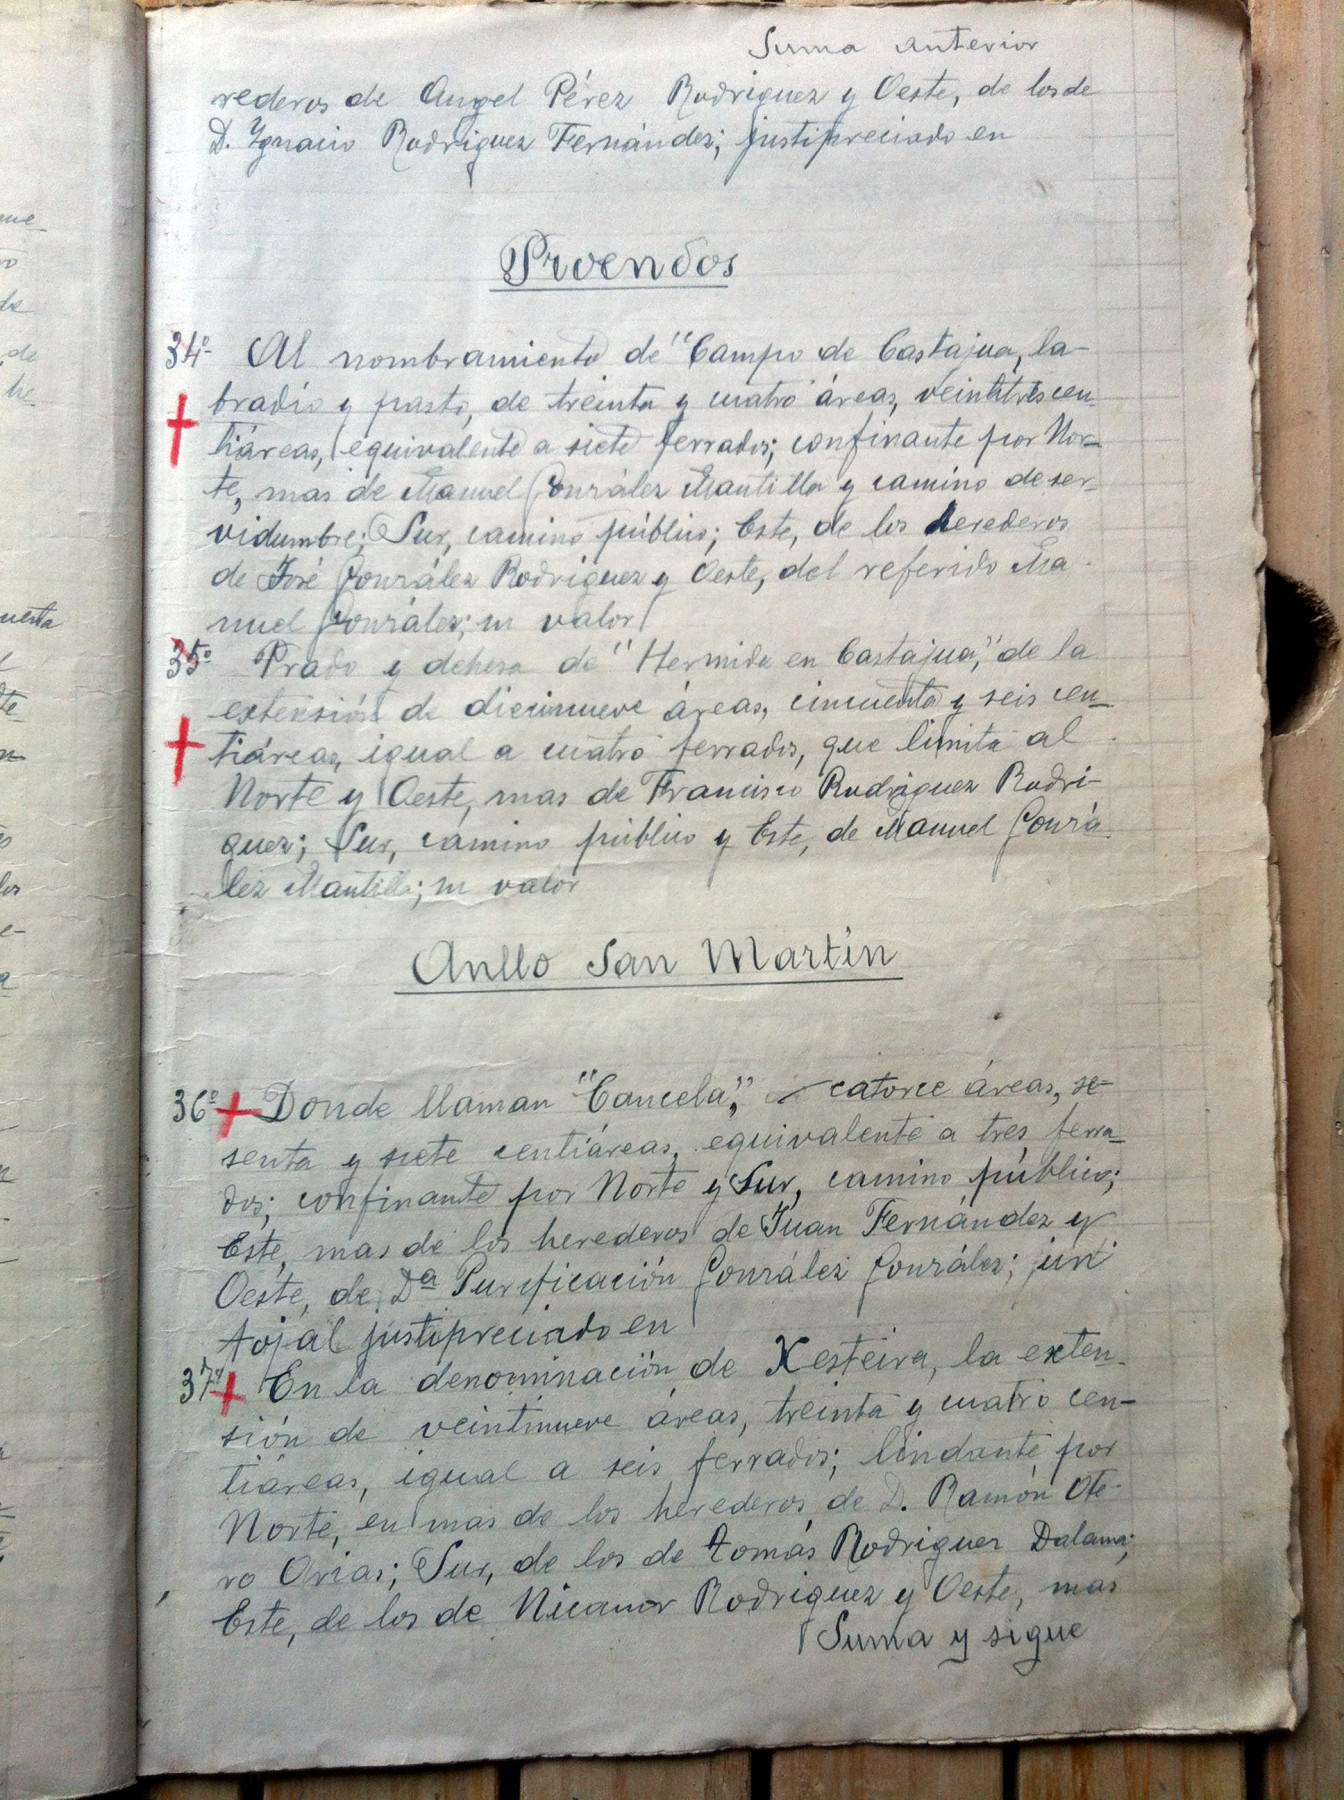 Suma anterior
rederos de Angel Pérez Rodriguez y Oeste, de los de
D. Ygnacio Rodriguez Fernández; justipreciado en
Proendos
34º Al nombramiento de "Campo de Castajua, la-
bradío y pasto, de treinta y cuatro áreas, veintitres cen-
tiáreas, equivalente a siete ferrados; confinante por Nor-
te, mas de Manuel González Mantilla y camino de ser-
vidumbre; Sur, camino público; Este, de los herederos
de José González Rodriguez y Oeste, del referido Ma-
nuel González; su valor
35º Prado y dehesa de "Hermida en Castajua," de la
extensión de diecinueve áreas, cincuenta y seis cen-
tiáreas, igual a cuatro ferrados, que limita al
Norte y Oeste, mas de Francisco Rodriguez Rodri-
guez; Sur, camino público y Este, de Manuel Gonzá-
lez Mantilla; su valor
Anllo San Martín
36º Donde llaman "Cancela," catorce áreas, se-
senta y siete centiáreas, equivalente a tres ferra-
dos; confinante por Norte y Sur, camino público;
Este, mas de los herederos de Juan Fernández y
Oeste, de Dª Purificación González González; un
tojal justipreciado en
37º En la denominación de Xesteira, la exten-
sión de veintinueve áreas, treinta y cuatro cen-
tiáreas, igual a seis ferrados; lindante por
Norte, en mas de los herederos de D. Ramón Ote-
ro Arias; Sur, de los de tomás Rodriguez Dalama;
Este, de los de Nicanor Rodriguez y Oeste, mas
Suma y sigue